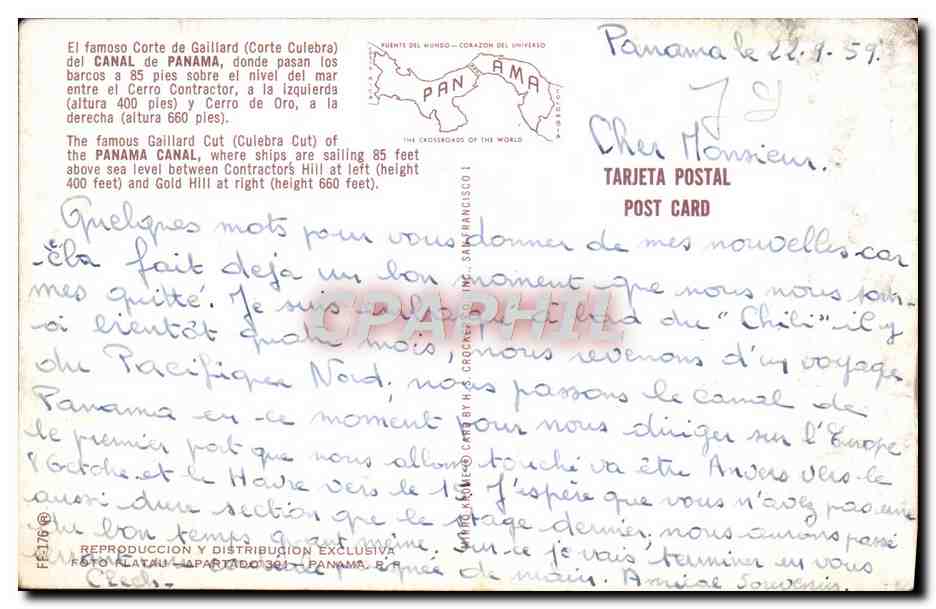 El famoso Corte de Gaillard (Corte Culebra)
del CANAL de PANAMA, donde pasan los
barcos a 85 pies sobre el nivel del mar
entre el Cerro Contractor, a la izquierda
(altura 400 pies) y Cerro de Oro, a la
derecha (altura 660 pies).
The famous Gaillard Cut (Culebra Cut) of
the PANAMA CANAL, where ships are sailing 85 feet
above sea level between Contractor's Hill at left (height
400 feet) and Gold Hill at right (height 660 feet).
PUENTE DEL MUNDO—CORAZON DEL UNIVERSO
PANAMA
COSTA RICA
COLOMBIA
THE CROSSROADS OF THE WORLD
Panama le 22.9.59.
Cher Monsieur.
TARJETA POSTAL
POST CARD
Quelques mots pour vous donner de mes nouvelles car
cela fait deja un bon moment que nous nous som-
mes quitté. Je suis embarqué a bord du "Chili" il y
a bientôt quatre mois, nous revenons d'un voyage
du Pacifique Nord, nous passons le canal de
Panama en ce moment pour nous diriger sur l'Europe
le premier port que nous allons touché va être Anvers vers le
8 Octobre et le Havre vers le 15. J'espère que vous n'avez pas une
aussi dure section que le stage dernier, nous aurons passé
du bon temps quant meme. Sur ce je vais terminer en vous
poignée de main. Amical Souvenir
CPARPHIL
FF-176
MIRRO-KROME ® CARD BY H.S. CROCKER CO., INC., SAN FRANCISCO 1
REPRODUCCION Y DISTRIBUCION EXCLUSIVA
FOTO FLATAU—APARTADO 391—PANAMA, R. P.